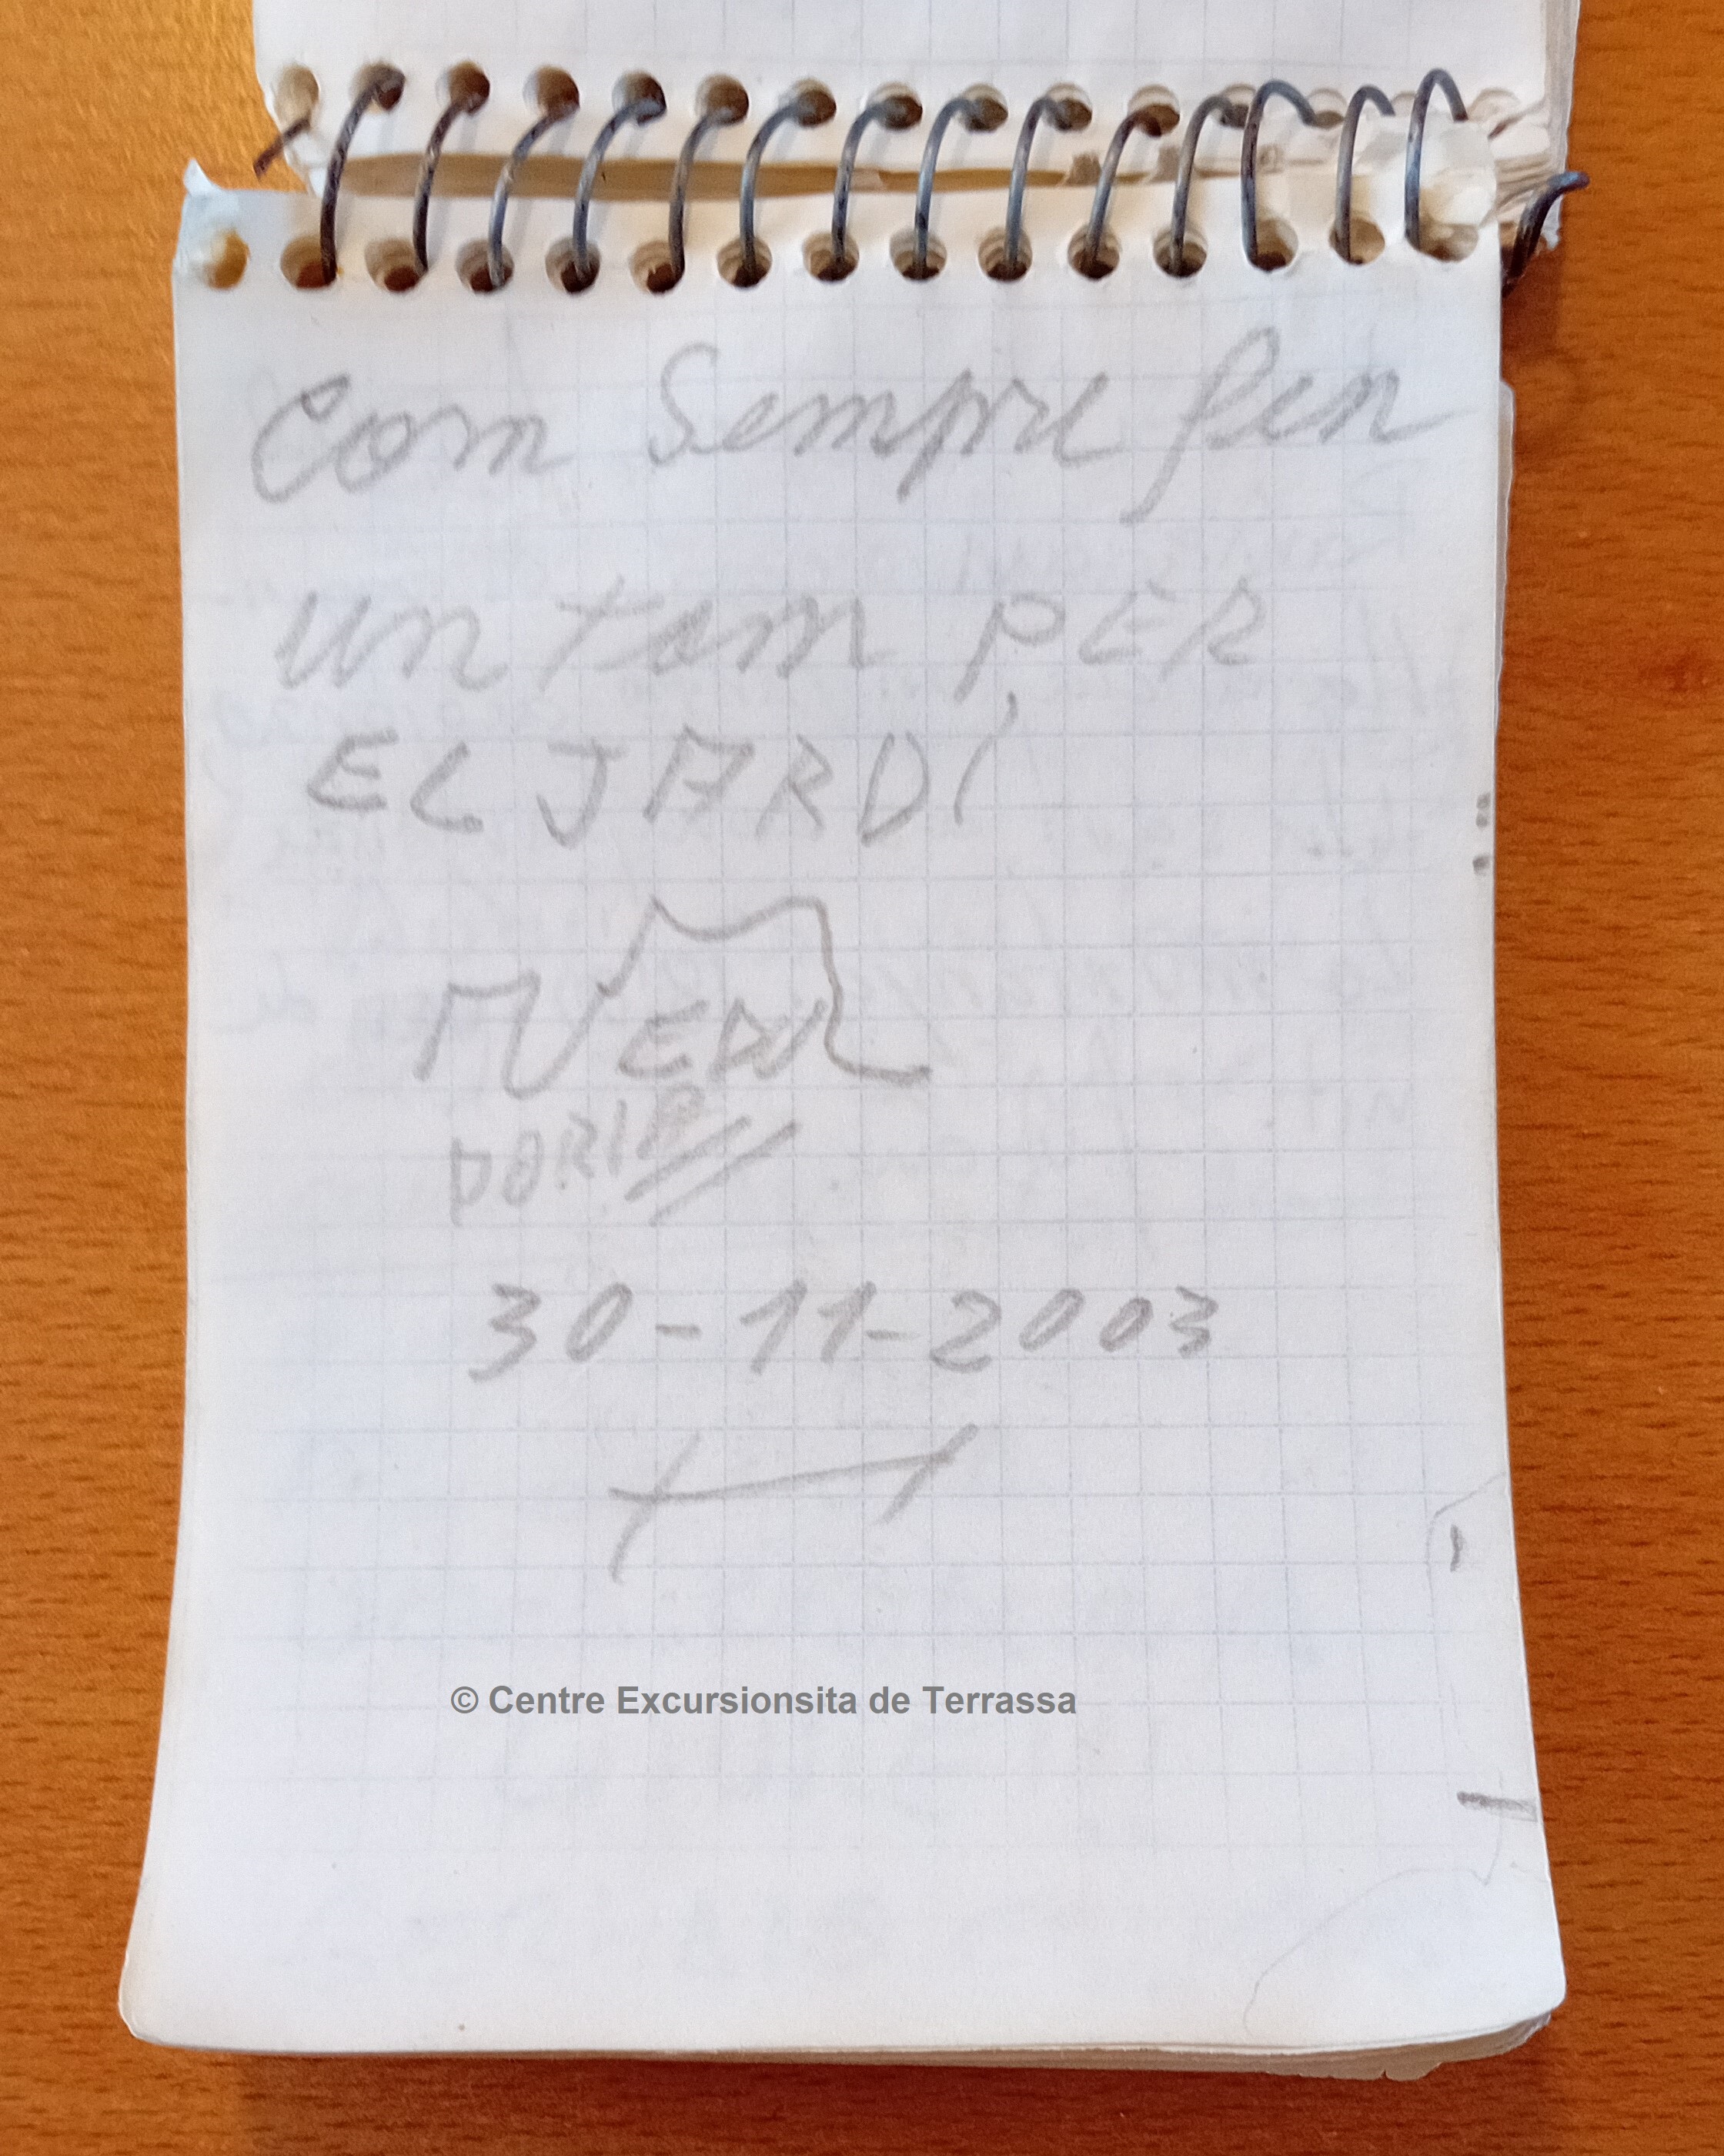 Com Sempre fen
un tom PER
EL JARDÍ
30-11-2003
© Centre Excursionsita de Terrassa